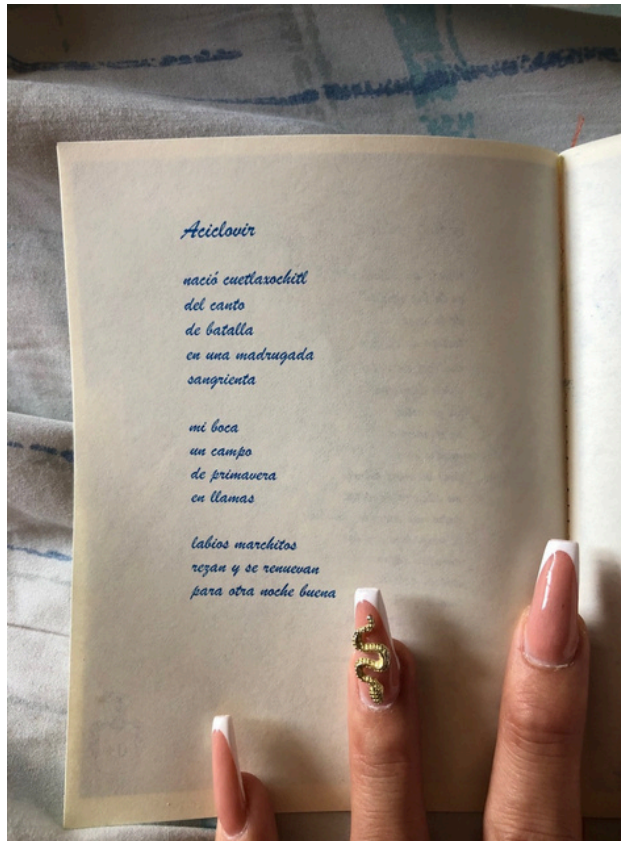 Aciclovir
nació cuetlaxochitl
del canto
de batalla
en una madrugada
sangrienta
mi boca
un campo
de primavera
en llamas
labios marchitos
rezan y se renuevan
para otra noche buena